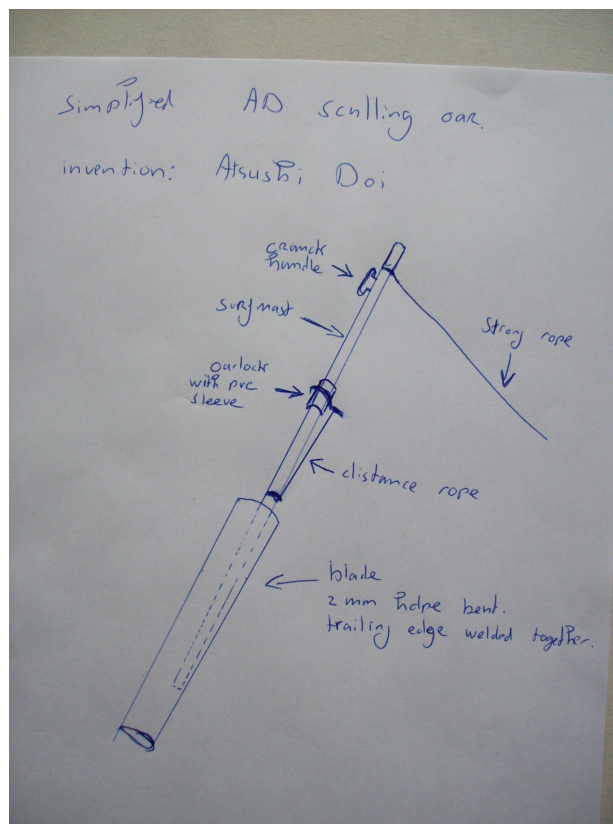 simplifyed AD sculling oar.
invention: Atsushi Doi
cranck
handle
surfmast
Strong rope
oarlock
with pvc
sleeve
distance rope
blade
2 mm hdpe bent.
trailing edge welded together.